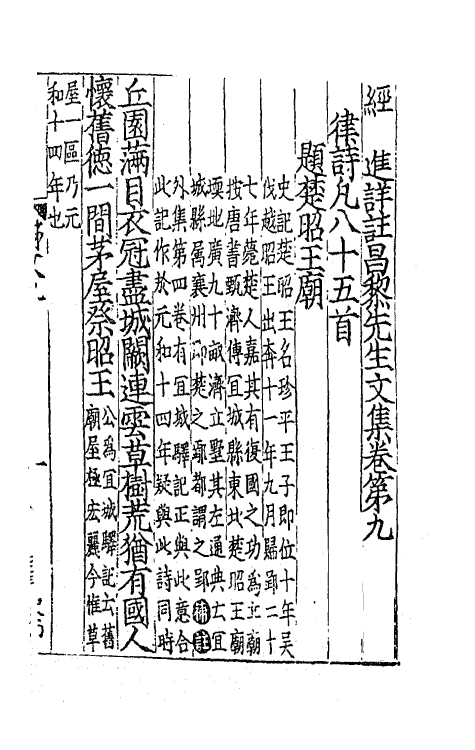 經　進詳註昌黎先生文集卷第九
律詩凡八十五首
題楚昭王廟
史記楚昭王名珍平王子即位十年吳
伐越昭王出奔十一年九月歸郢二十
七年薨楚人嘉其有復國之功為立廟
按唐書甄濟傳宜城縣東北楚昭王廟
堧地廣九十畝濟立墅其左通典云宜
城縣屬襄州即楚之鄢都謂之郢補註
外集第四卷有宜城驛記正與此意合
此記作於元和十四年疑與此詩同時
丘園滿目衣冠盡城闕連雲草樹荒猶有國人
懷舊德一間茅屋祭昭王
公為宜城驛記云舊
廟屋極宏麗今惟草
屋一區乃元
和十四年也
一